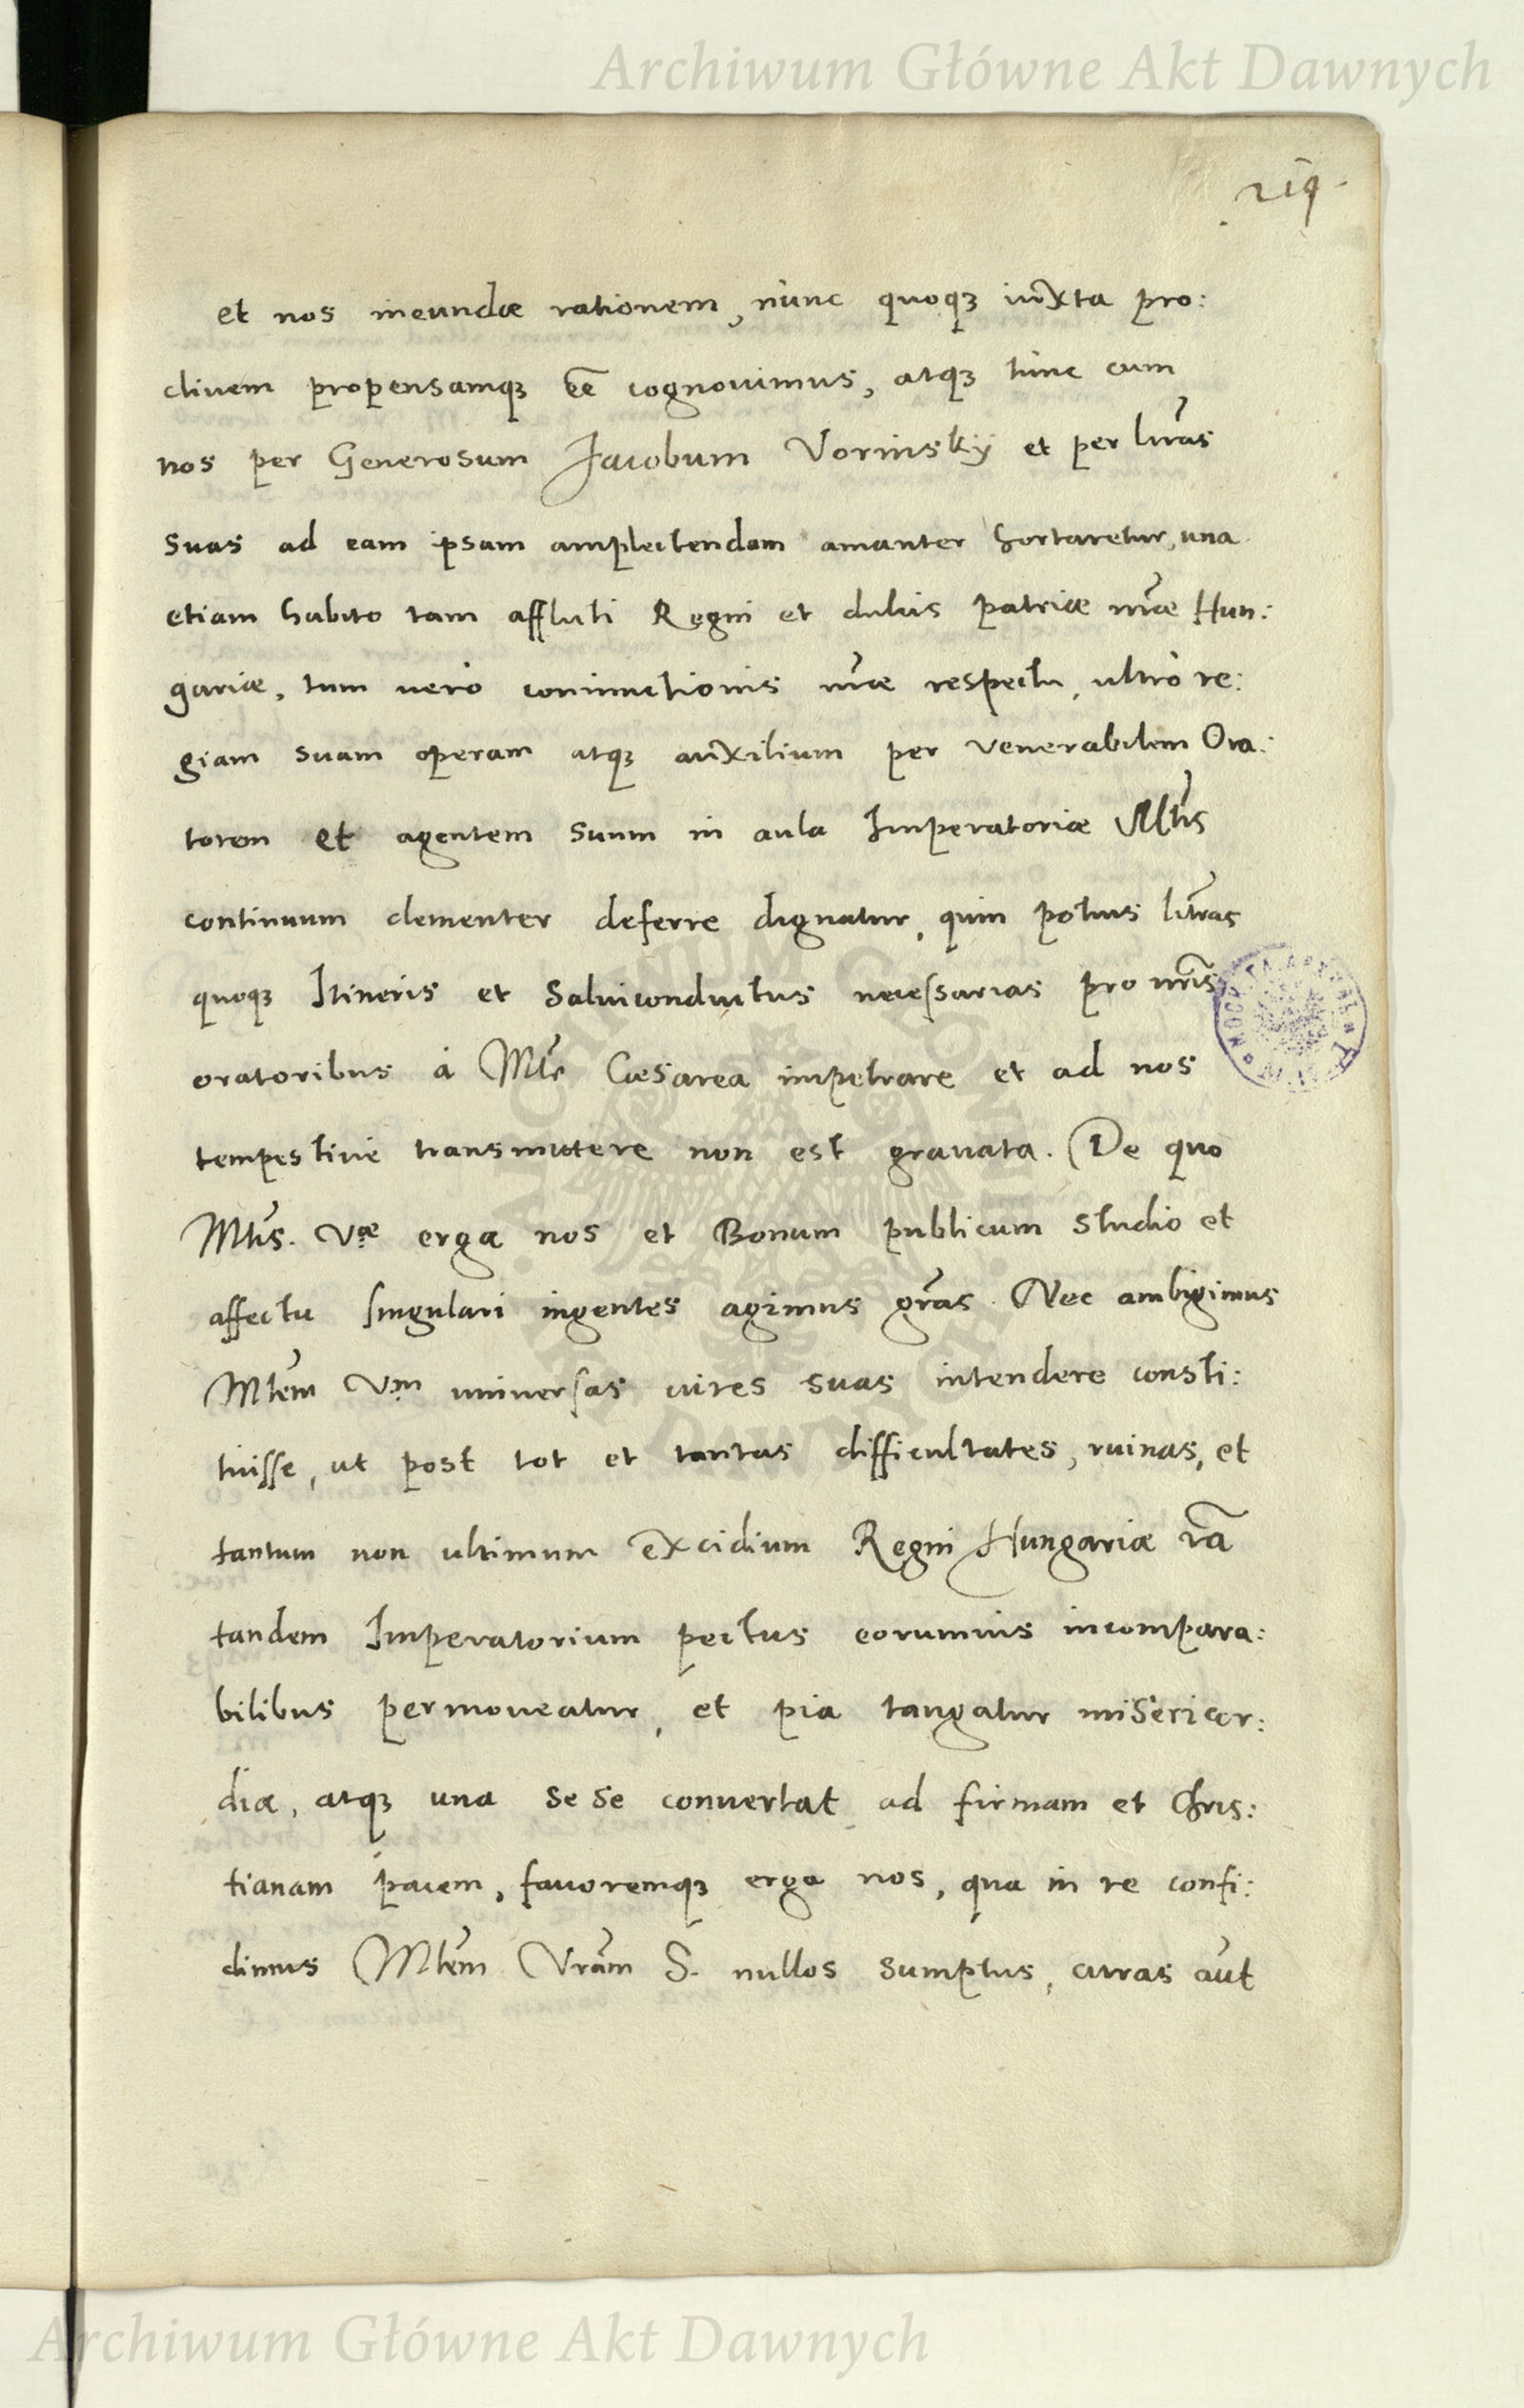 Archiwum Główne Akt Dawnych
et nos ineundæ rationem, nunc quoqꝫ iuxta pro:
cliuem propensamqꝫ eē cognouimus, atqꝫ tunc cum
nos per Generosum Jacobum Vorinsky et per lr̃as
suas ad eam ipsam amplectendam amanter hortaretur, una
etiam habito tam afflicti Regni et dulcis patriæ nr̃æ Hun:
gariæ, tum uero coniunctionis nr̃æ respectu, ultro re:
giam suam operam atqꝫ auxilium per venerabilem Ora:
torem et agentem suum in aula Imperatoriæ Mtis
continuum clementer deferre dignatur, quin potius litr̃as
quoqꝫ Itineris et Saluiconductus necessarias pro nr̃is
oratoribus á Mte Cæsarea impetrare et ad nos
tempestiue transmittere non est grauata. De quo
Mtis. Vræ erga nos et Bonum publicum studio et
affectu singulari ingentes agimus gr̃as. Nec ambigimus
Mtem Vrm uniuersas uires suas intendere consti:
tuisse, ut post tot et tantas difficultates, ruinas, et
tantum non ultimum excidium Regni Hungariæ
tandem Imperatorium pectus incompara:
bilibus permoueatur, et pia tangatur misericor:
dia, atqꝫ una sese conuertat ad firmam et Chris:
tianam pacem, fauoremqꝫ erga nos, qua in re confi:
dimus Mtem Vram S. nullos sumptus, curas aut
Archiwum Główne Akt Dawnych